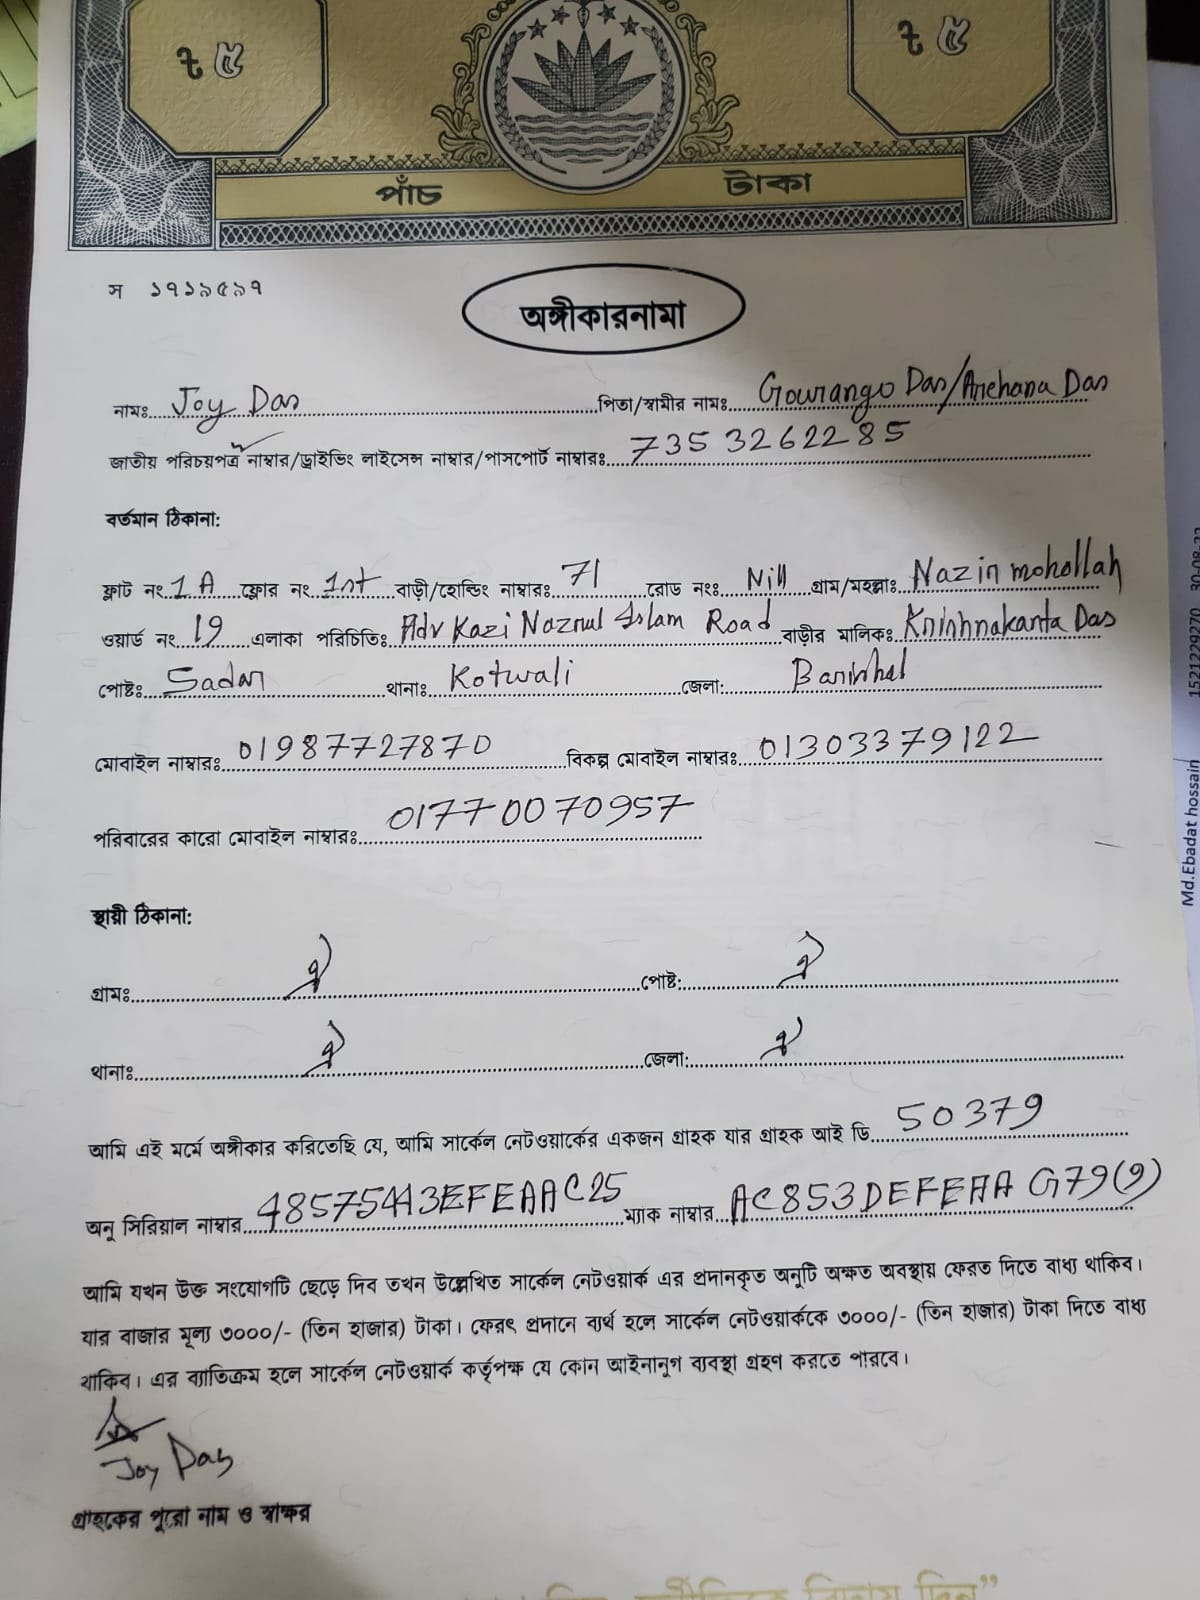 ৳ ৫ ৳ ৫
পাঁচ টাকা
স ১৭১৯৫৯৭
অঙ্গীকারনামা
নামঃ Joy Das পিতা/স্বামীর নামঃ Gourango Das/Archana Das
জাতীয় পরিচয়পত্র নাম্বার/ড্রাইভিং লাইসেন্স নাম্বার/পাসপোর্ট নাম্বারঃ 7353262285
বর্তমান ঠিকানা:
ফ্লাট নং 1A ফ্লোর নং 1st বাড়ী/হোল্ডিং নাম্বারঃ 71 রোড নংঃ Nill গ্রাম/মহল্লাঃ Nazir mohollah
ওয়ার্ড নং 19 এলাকা পরিচিতিঃ Adv Kazi Nazrul Islam Road বাড়ীর মালিকঃ Krishnakanta Das
পোষ্টঃ Sadar থানাঃ Kotwali জেলা: Barishal
মোবাইল নাম্বারঃ 01987727870 বিকল্প মোবাইল নাম্বারঃ 01303379122
পরিবারের কারো মোবাইল নাম্বারঃ 01770070957
স্থায়ী ঠিকানা:
গ্রামঃ ঐ পোষ্ট: ঐ
থানাঃ ঐ জেলা: ঐ
আমি এই মর্মে অঙ্গীকার করিতেছি যে, আমি সার্কেল নেটওয়ার্কের একজন গ্রাহক যার গ্রাহক আই ডি 50379
অনু সিরিয়াল নাম্বার 48575443EFEAAC25 ম্যাক নাম্বার AC853DEFEAA G79(9)
আমি যখন উক্ত সংযোগটি ছেড়ে দিব তখন উল্লেখিত সার্কেল নেটওয়ার্ক এর প্রদানকৃত অনুটি অক্ষত অবস্থায় ফেরত দিতে বাধ্য থাকিব।
যার বাজার মূল্য ৩০০০/- (তিন হাজার) টাকা। ফেরৎ প্রদানে ব্যর্থ হলে সার্কেল নেটওয়ার্ককে ৩০০০/- (তিন হাজার) টাকা দিতে বাধ্য
থাকিব। এর ব্যাতিক্রম হলে সার্কেল নেটওয়ার্ক কর্তৃপক্ষ যে কোন আইনানুগ ব্যবস্থা গ্রহণ করতে পারবে।
Joy Das
গ্রাহকের পুরো নাম ও স্বাক্ষর
Md.Ebadat hossain 1521229270 30-08-22